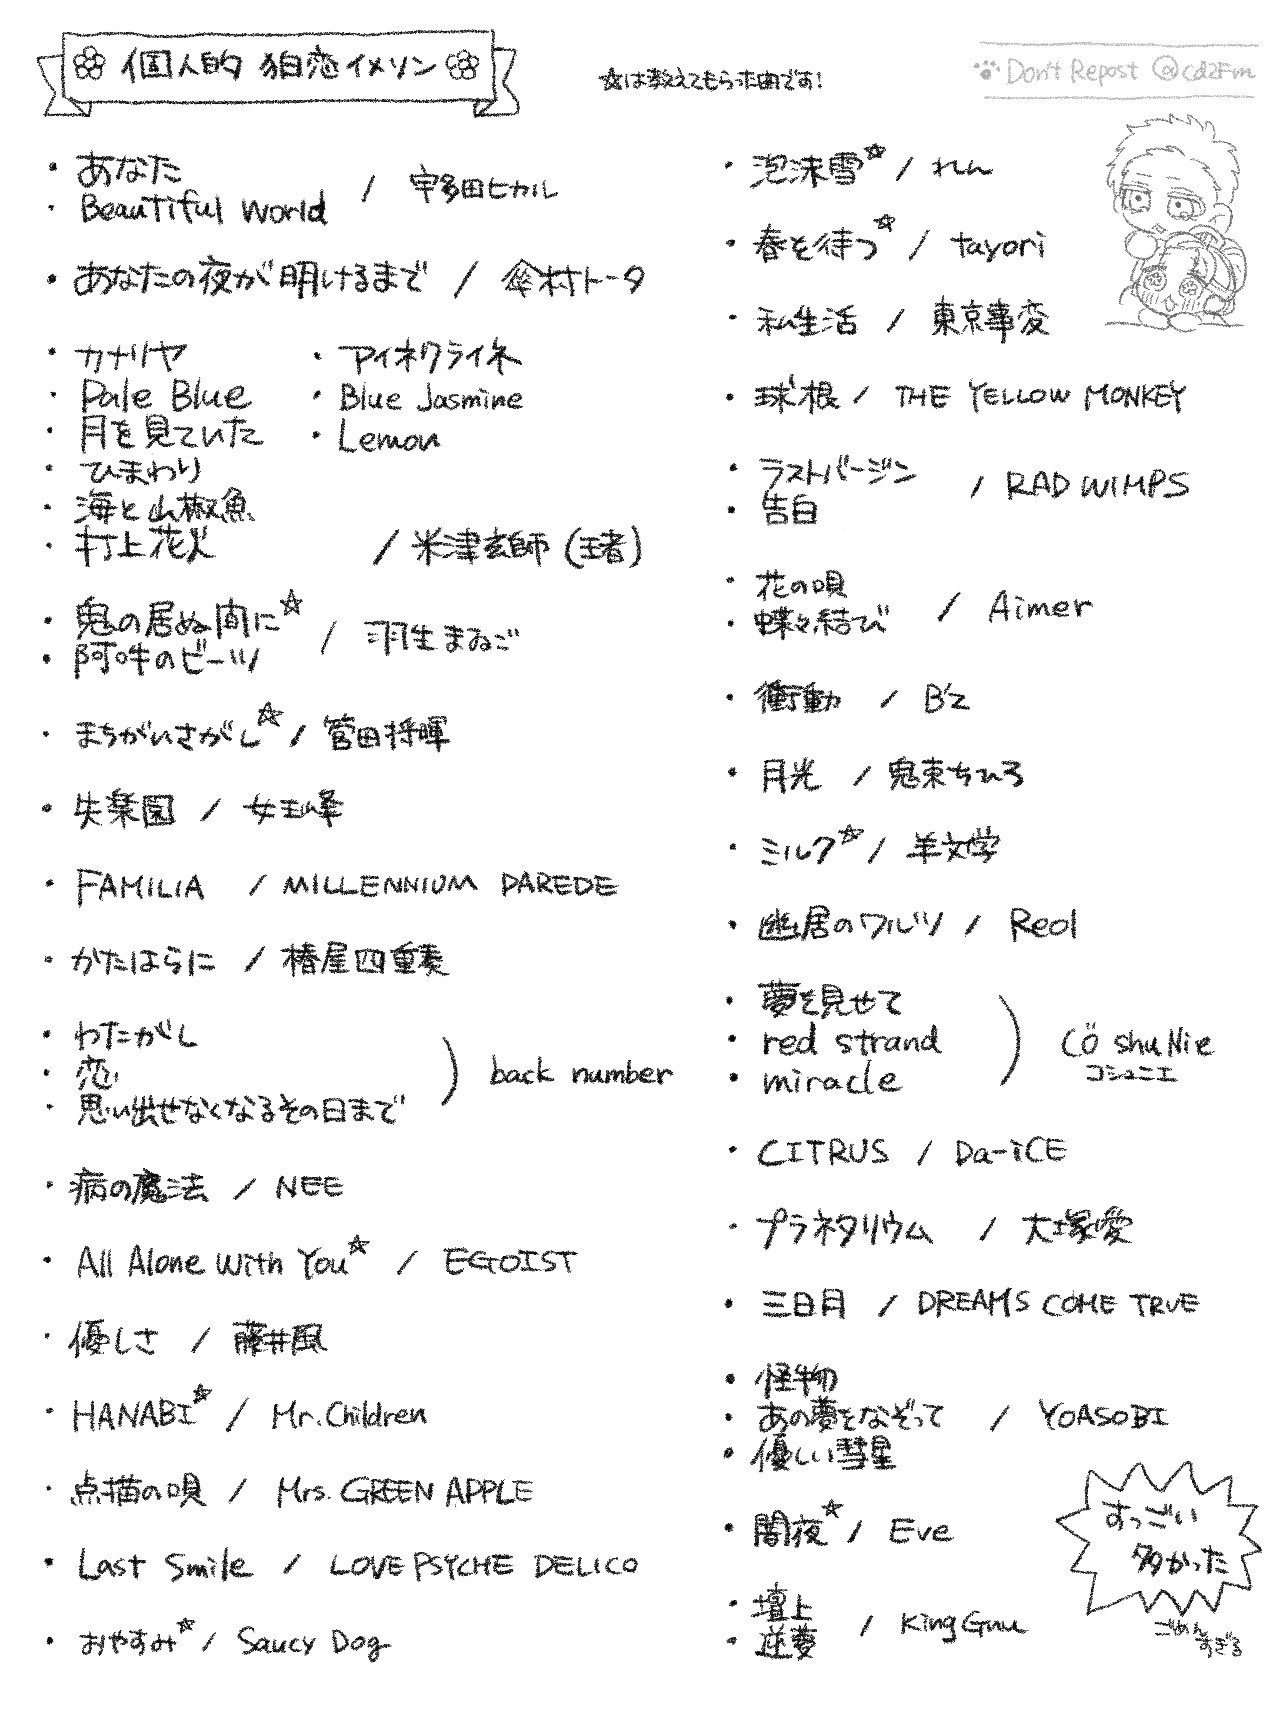 個人的 狛恋イメソン
☆は教えてもらった曲です!
Don't Repost @cd2Fm
・あなた
・Beautiful World / 宇多田ヒカル
・あなたの夜が明けるまで / 傘村トータ
・カナリヤ
・Pale Blue
・月を見ていた
・ひまわり
・海と山椒魚
・打上花火
・アイネクライネ
・Blue Jasmine
・Lemon
/ 米津玄師 (王者)
・鬼の居ぬ間に☆
・阿吽のビーツ / 羽生まゐご
・まちがいさがし☆ / 菅田将暉
・失楽園 / 女王蜂
・FAMILIA / MILLENNIUM PAREDE
・かたはらに / 椿屋四重奏
・わたがし
・恋
・思い出せなくなるその日まで
) back number
・病の魔法 / NEE
・All Alone With You☆ / EGOIST
・優しさ / 藤井風
・HANABI☆ / Mr.Children
・点描の唄 / Mrs. GREEN APPLE
・Last Smile / LOVE PSYCHE DELICO
・おやすみ☆ / Saucy Dog
・泡沫雪☆ / れん
・春を待つ☆ / tayori
・私生活 / 東京事変
・球根 / THE YELLOW MONKEY
・ラストバージン
・告白 / RAD WIMPS
・花の唄
・蝶々結び / Aimer
・衝動 / B'z
・月光 / 鬼束ちひろ
・ミルク☆ / 羊文学
・幽居のワルツ / Reol
・夢を見せて
・red strand
・miracle
) Cö shu Nie
コシュニエ
・CITRUS / Da-iCE
・プラネタリウム / 大塚愛
・三日月 / DREAMS COME TRUE
・怪物
・あの夢をなぞって / YOASOBI
・優しい彗星
・闇夜☆ / Eve
・壇上
・逆夢 / King Gnu
すっごい
多かった
ごめん
すぎる